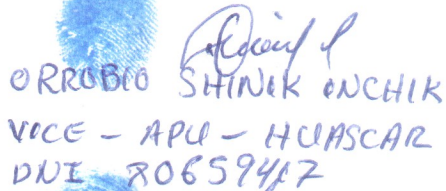 ORROBIO SHINIK INCHIK
VICE - APU - HUASCAR
DNI 80659417